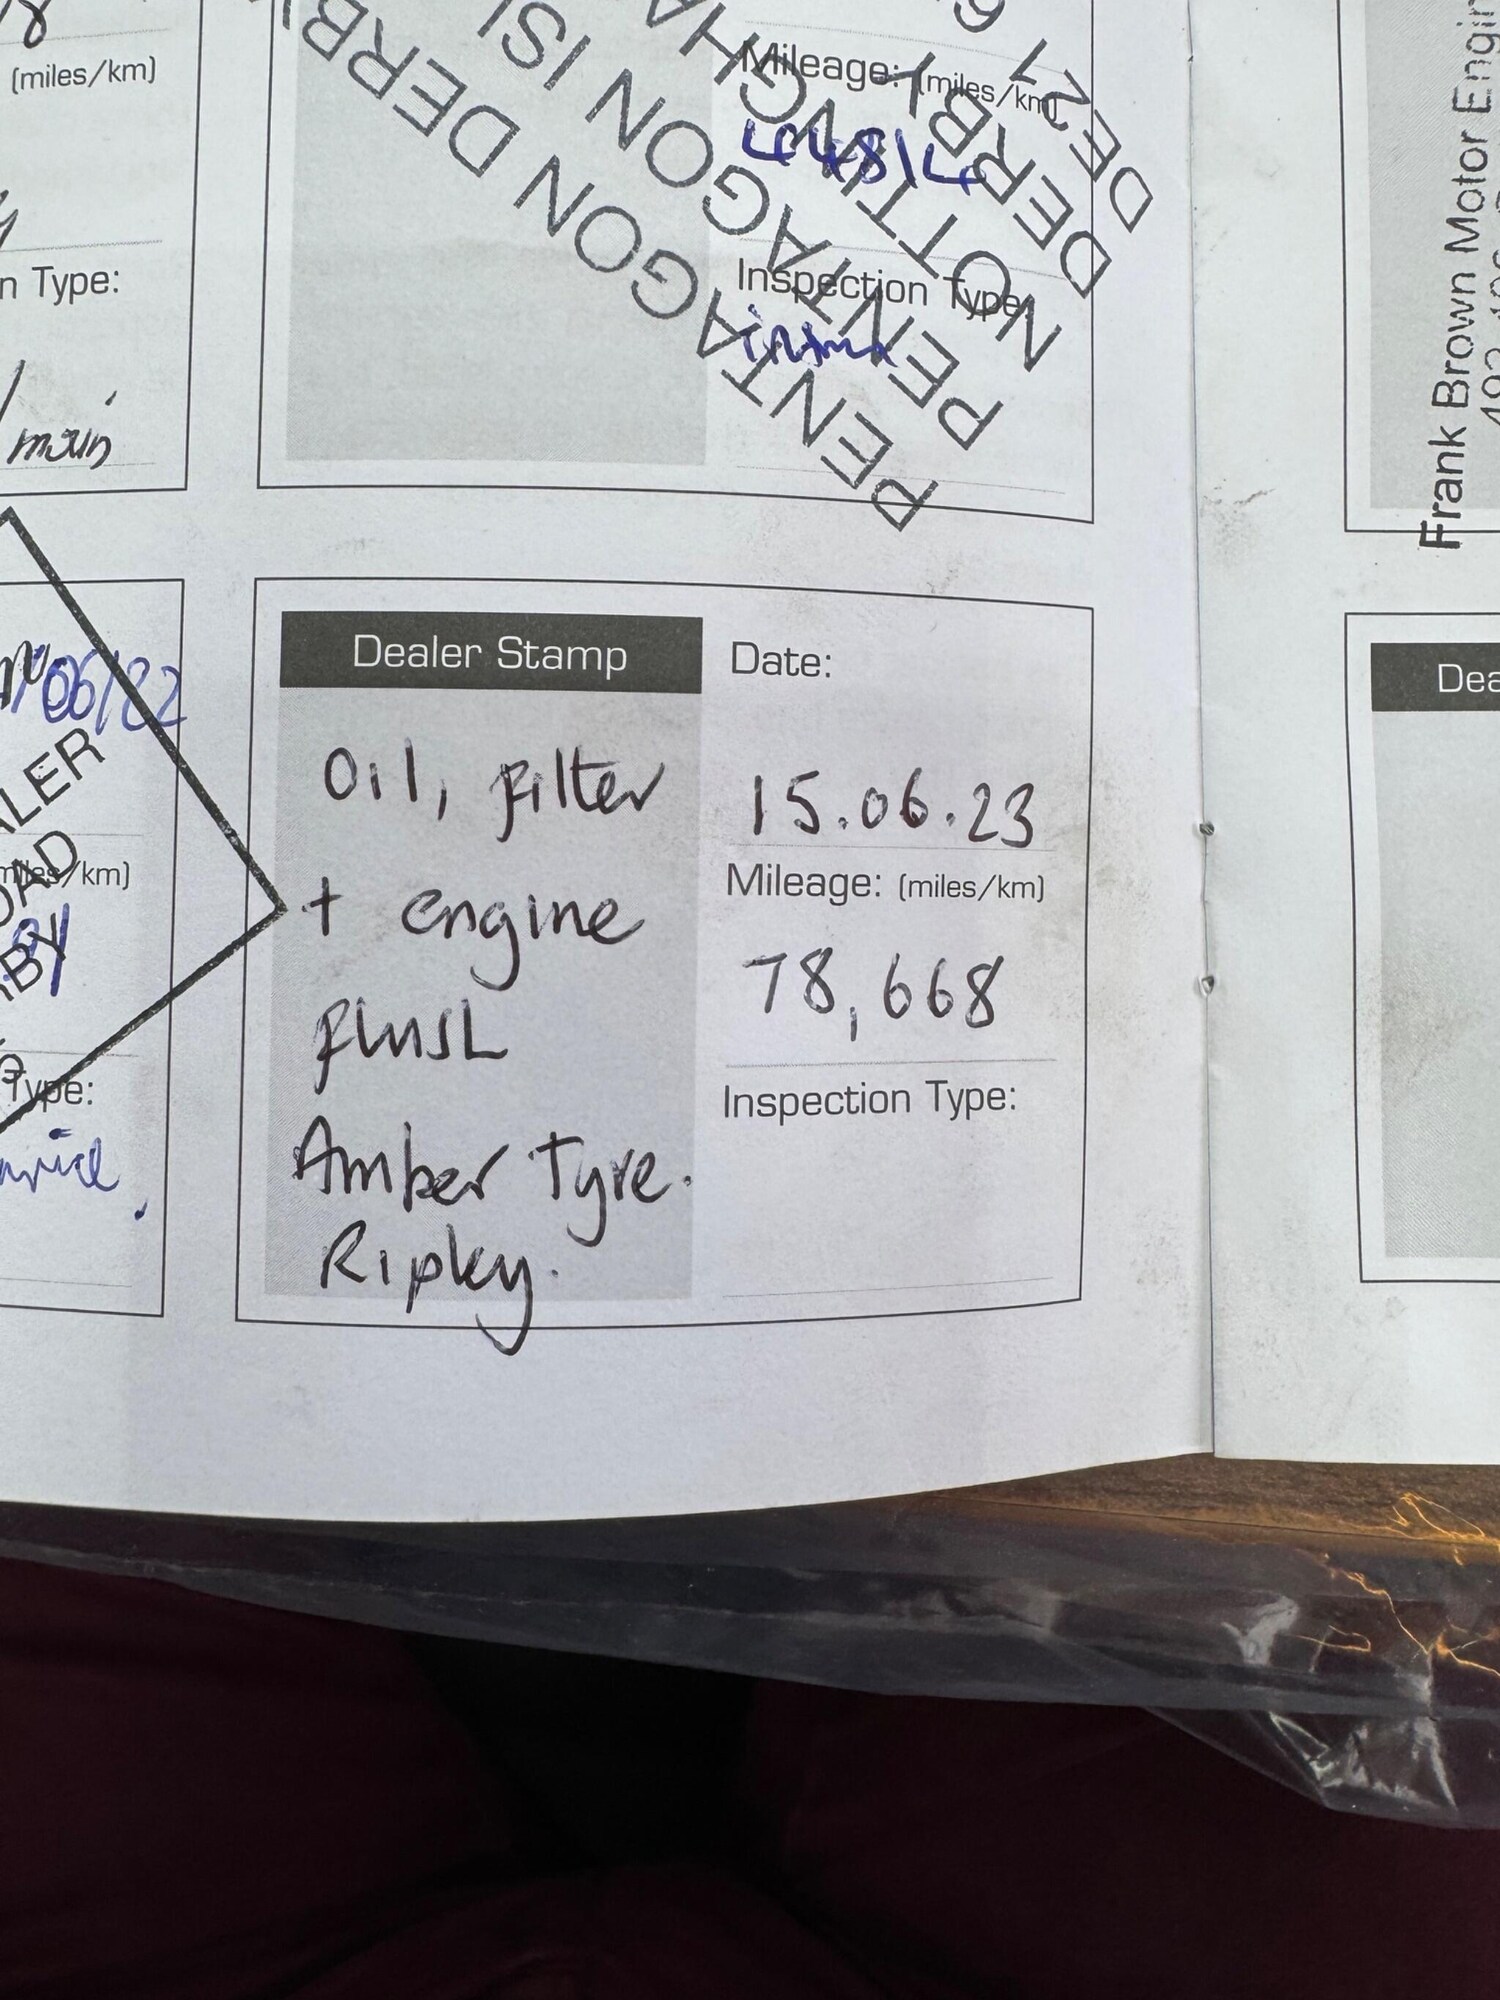 (miles/km)
n Type:
main
PENTAGON DERBY
PENTAGON ISL
NOTTINGHA
DERBY
DE21 6
Mileage: (miles/km)
Inspection Type:
Frank Brown Motor Engin
06/22
ALER
OAD
miles/km)
RBY
Type:
Dealer Stamp
Oil, filter
+ engine
flush
Amber Tyre.
Ripley.
Date:
15.06.23
Mileage: (miles/km)
78,668
Inspection Type:
Dea